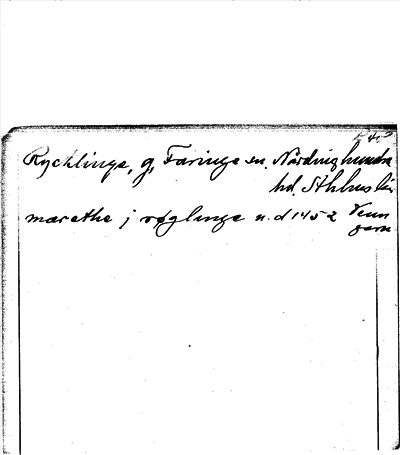 Rycklinge, g, Färinge sn. Närdinghundra
hd. Sthlms län
marethe j røglinge u. d 1452 Venn
garn